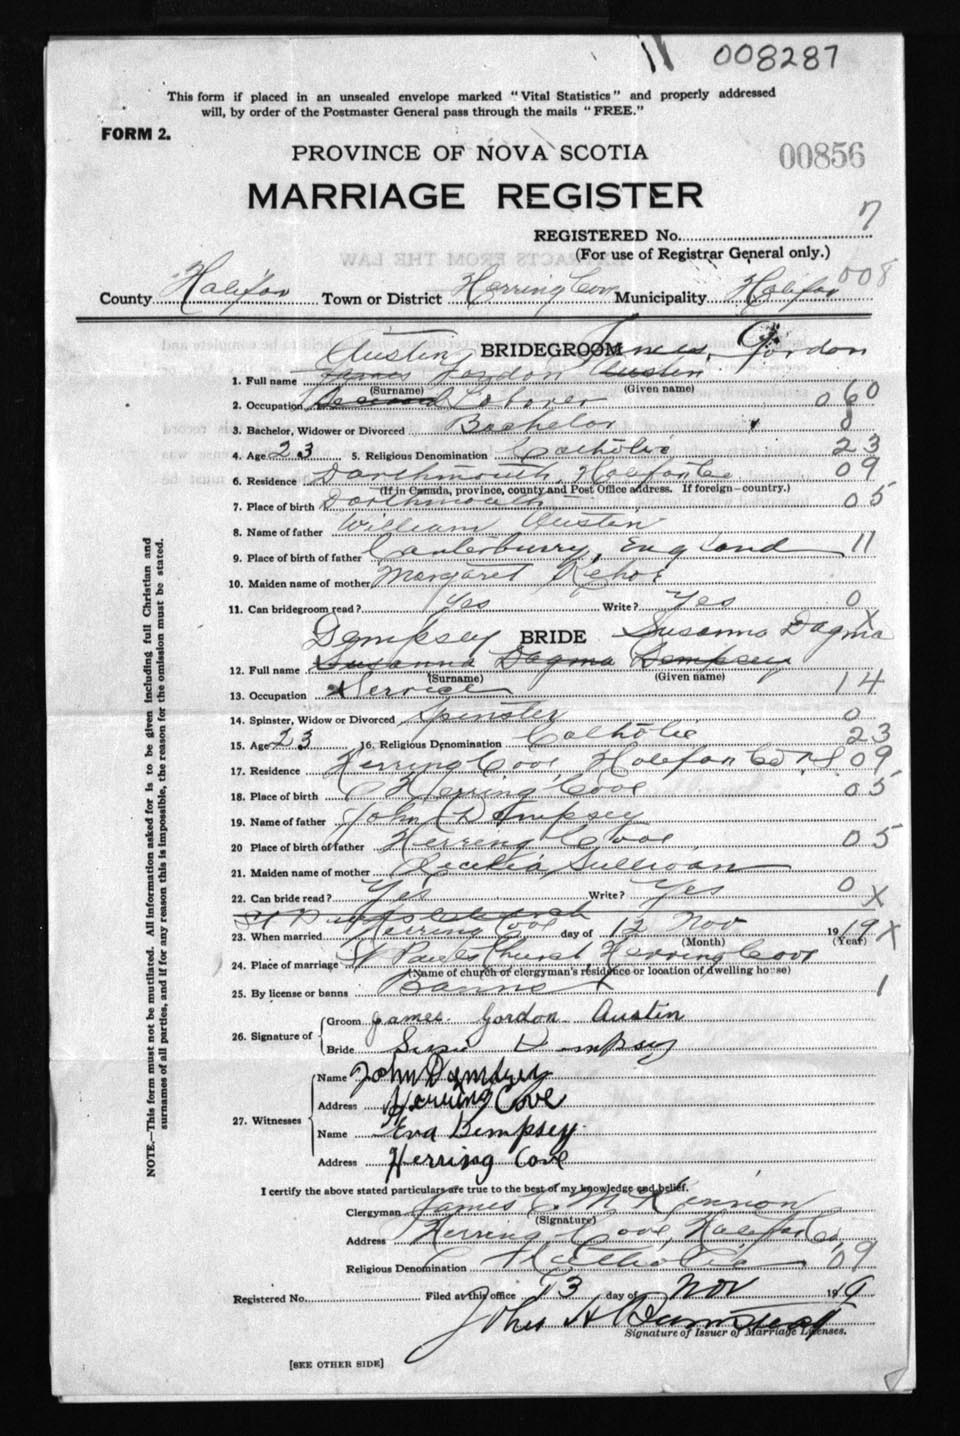 008287
This form if placed in an unsealed envelope marked "Vital Statistics" and properly addressed
will, by order of the Postmaster General pass through the mails "FREE."
FORM 2.
PROVINCE OF NOVA SCOTIA
00856
MARRIAGE REGISTER
REGISTERED No. 7
(For use of Registrar General only.)
008
County Halifax Town or District Herring Cove Municipality Halifax
Austin BRIDEGROOM James Gordon
1. Full name James Gordon Austin
(Surname) (Given name)
2. Occupation Laborer 060
3. Bachelor, Widower or Divorced Bachelor 0
4. Age 23 5. Religious Denomination Catholic 23
6. Residence Darthmouth, Halifax Co 09
(If in Canada, province, county and Post Office address. If foreign—country.)
7. Place of birth Darthmouth 05
8. Name of father William Austin
9. Place of father Canterburry, England 11
10. Maiden name of mother Margaret Kehoe
11. Can bridegroom read? Yes Write? Yes 0
X
Dempsey BRIDE Susanna Dagma
12. Full name Susanna Dagma Dempsey
(Surname) (Given name)
13. Occupation Service 14
14. Spinster, Widow or Divorced Spinster 0
15. Age 23 16. Religious Denomination Catholic 23
17. Residence Herring Cove, Halifax Co N.S. 09
18. Place of birth Herring Cove 05
19. Name of father John Dempsey
20 Place of birth of father Herring Cove 05
21. Maiden name of mother Cecelia Sullivan
22. Can bride read? Yes Write? Yes 0 X
23. When married Herring Cove day of 12 Nov 1919 X
(Month) (Year)
24. Place of marriage St Pauls Church, Herring Cove
(Name of church or clergyman's residence or location of dwelling house)
25. By license or banns Banns 1
26. Signature of Groom James Gordon Austin
Bride Susie Dempsey
27. Witnesses
Name John Dempsey
Address Herring Cove
Name Eva Dempsey
Address Herring Cove
I certify the above stated particulars are true to the best of my knowledge and belief.
Clergyman James C. McKinnon
(Signature)
Address Herring Cove, Halifax Co.
Religious Denomination Catholic 09
Registered No. Filed at this office 13 day of Nov 19
John A
Signature of Issuer of Marriage Licenses.
[SEE OTHER SIDE]
NOTE.—This form must not be mutilated. All information asked for is to be given including full Christian and
surnames of all parties, and if for any reason this is impossible, the reason for the omission must be stated.